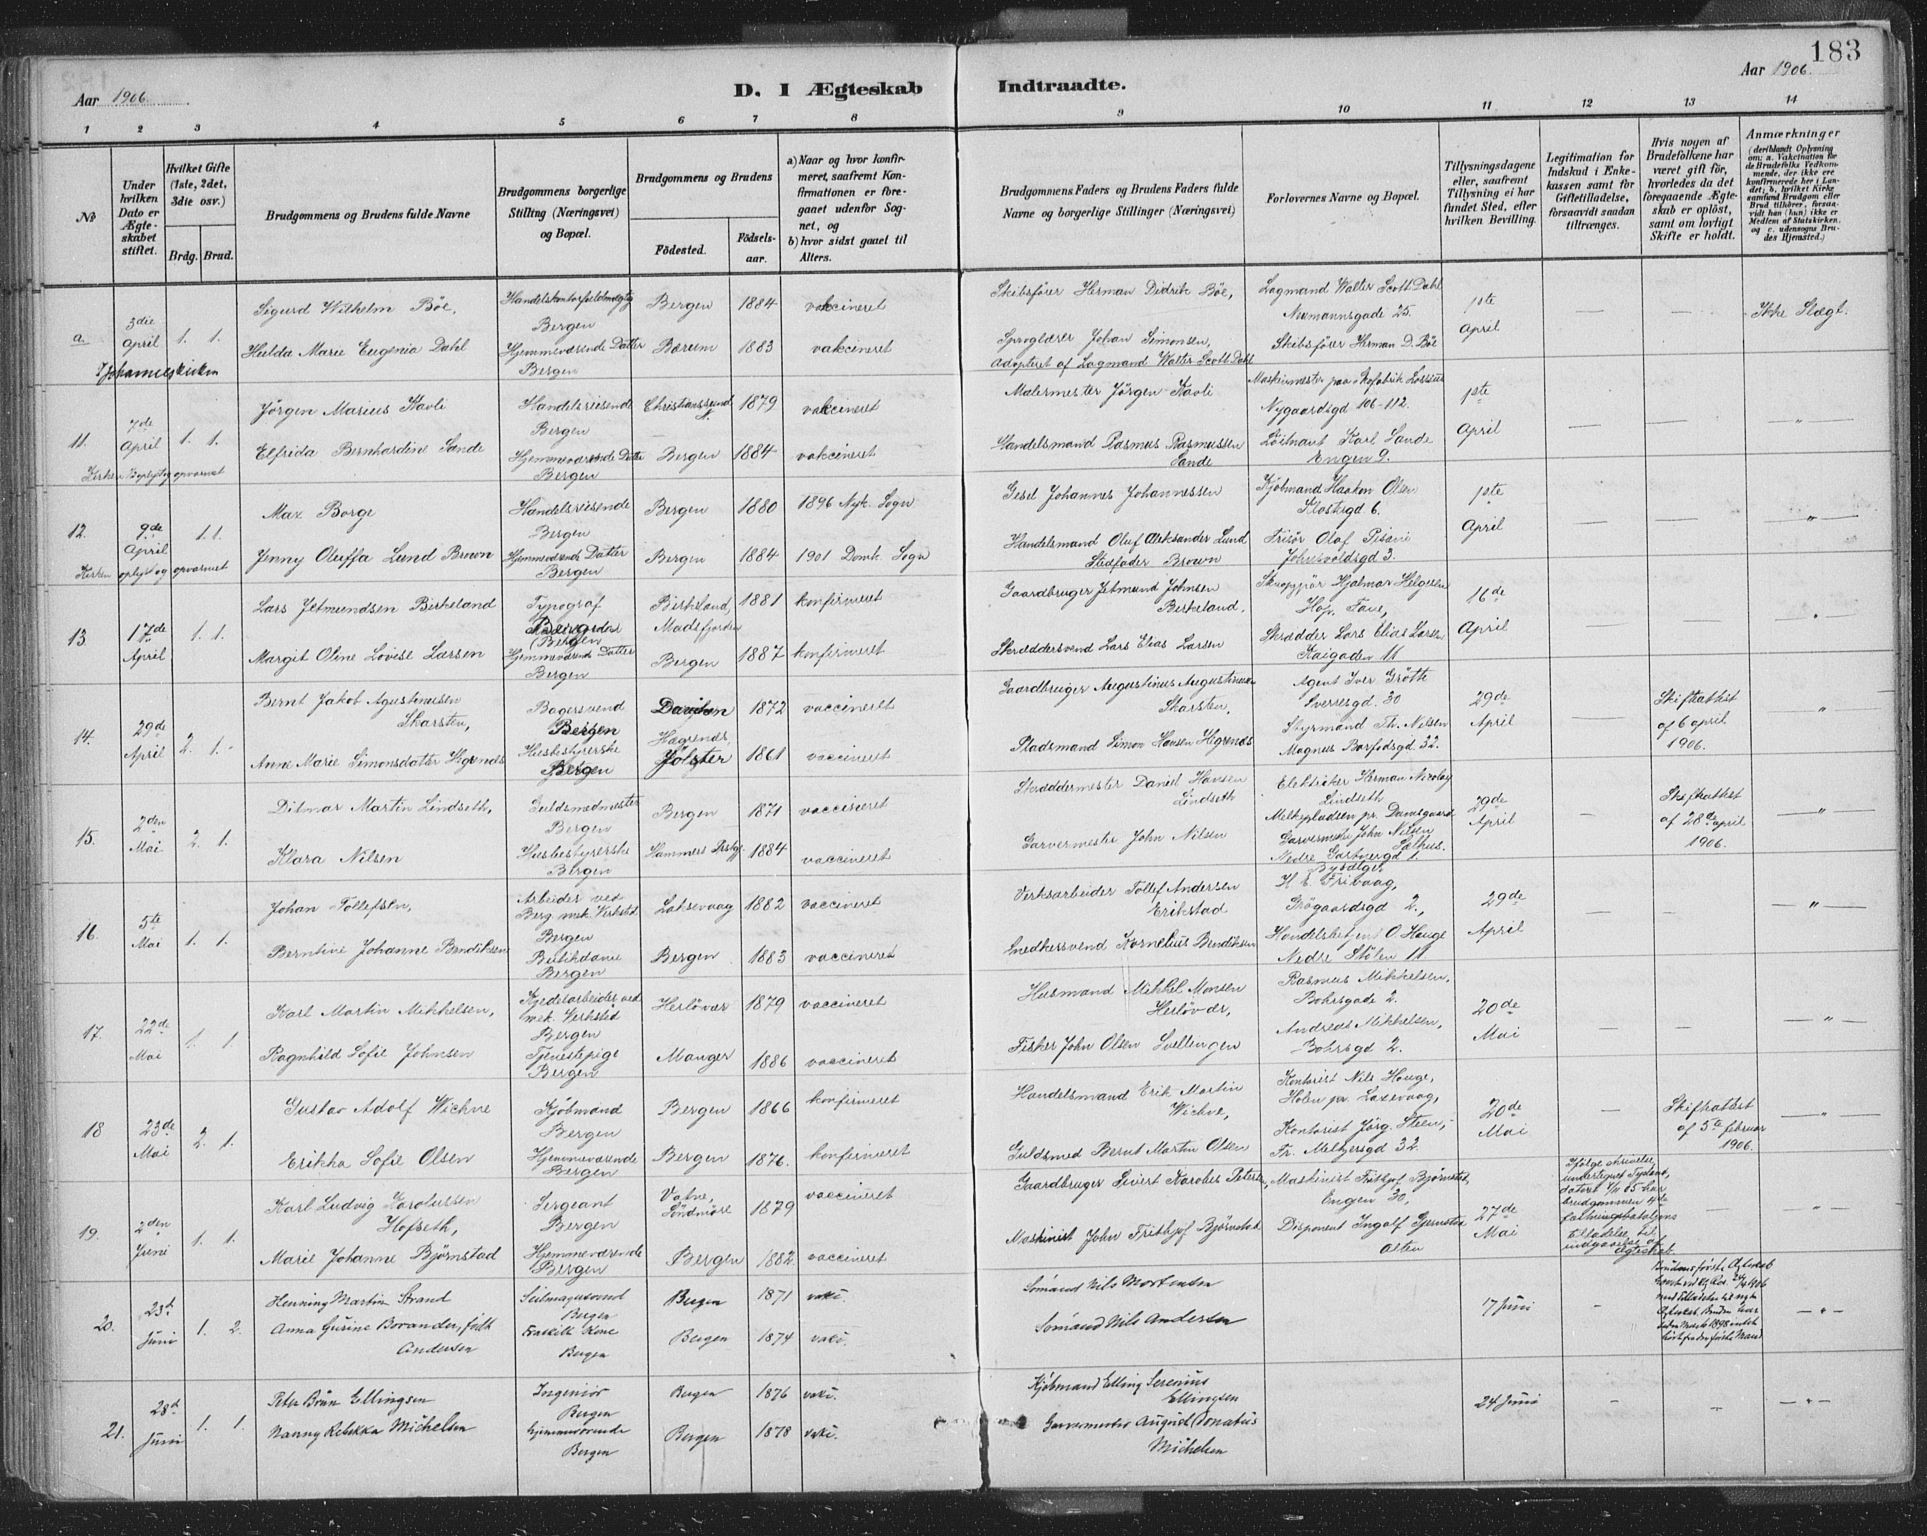 183
Aar 1906.
D. I Ægteskab
Indtraadte.
Aar 1906.
1 2 3 4 5 6 7 8 9 10 11 12 13 14
No
Under hvilken Dato er Ægteskabet stiftet.
Hvilket Gifte (1ste, 2det, 3die osv.)
Brdg. Brud.
Brudgommens og Brudens fulde Navne
Brudgommens borgerlige Stilling (Næringsvei) og Bopæl.
Brudgommens og Brudens
Födested.
Födselsaar.
a) Naar og hvor konfirmeret, saafremt Konfirmationen er foregaaet udenfor Sognet, og
b) hvor sidst gaaet til Alters.
Brudgommens Faders og Brudens Faders fulde Navne og borgerlige Stillinger (Næringsvei)
Forlovernes Navne og Bopæl.
Tillysningsdagene eller, saafremt Tillysning ei har fundet Sted, efter hvilken Bevilling.
Legitimation for Indskud i Enkekassen samt for Giftetilladelse, forsaavidt saadan tiltrænges.
Hvis nogen af Brudefolkene har været gift för, hvorledes da det foregaaende Ægteskab er oplöst, samt om lovligt Skifte er holdt.
Anmærkninger
(deriblandt Oplysning om: a. Vakcination for de Brudefolks Vedkommende, der ikke ere konfirmerede her i Landet; b. hvilket Kirkesamfund Brudgom eller Brud tilhörer, forsaavidt han (hun) ikke er Medlem af Statskirken, og c. udensogns Brudes Hjemsted.)
a. 3die April 1. 1.
Sigurd Wilhelm Böe, Bergen Bergen 1884 vakcineret
Skibsförer Herman Didrik Böe, Lagmand Walter Scott Dahl Neumannsgade 25. 1ste April Ikke Slægt.
Hulda Marie Eugenia Dahl Hjemmeværende Datter Bergen Bærum 1883 vakcineret
Sproglærer Johan Simonsen, Adopteret af Lagmand Walter Scott Dahl Skibsförer Herman D. Böe
Johanneskirken
11. 7de April 1. 1.
Jörgen Marius Kavli Handelsreisende Bergen Christianssund N. 1879 vakcineret
Malermester Jörgen Kavli Maskinmester Nygaardsgd 106-112. 1ste April
Elfrida Bernhardine Sande Hjemmeværende Datter Bergen Bergen 1884 vakcineret
Handelsmand Rasmus Rasmussen Sande Löitnant Karl Sande Engen 9.
Kirken oplyst og opvarmet
12. 9de April 1. 1.
Max Borge Handelsreisende Bergen Bergen 1880 1896 Nyk. Sogn
Gesel Johannes Johannessen Kjöbmand Haakon Olsen Klostergd 6. 1ste April
Jenny Oluffa Lund Brown Hjemmeværende Datter Bergen Bergen 1884 1901 Domk. Sogn
Handelsmand Oluf Aleksander Lund Stedfader Brown Frisör Olaf Pisani 3.
Kirken oplyst og opvarmet
13 17de April 1. 1.
Lars Jetmundsen Birkeland Typograf Bergen Birkeland, Madsfjorden 1881 konfirmeret
Gaardbruger Jetmund Johnsen Birkeland. Hjalmar Helgesen Hop, Fane, 16de April
Margit Oline Lovise Larsen Hjemmeværende Datter Bergen Bergen 1887 konfirmeret
Skræddersvend Lars Elias Larsen Skrædder Lars Elias Larsen Kaigaden 11
14. 29de April 2. 1.
Bernt Jakob Agustinusen Skarsten, Bagersvend Bergen Daviken 1872 vaccineret
Gaardbruger Augustinus Augustinusen Skarsten, Agent Iver Grötte Sverresgd. 30 29de April Skifteattest af 6 april 1906.
Anne Marie Simonsdatter Hegrenæs Husbestyrerske Bergen Hegrenæs, Jölster 1861 vaccineret
Pladsmand Simon Hansen Hegrenæs Styrmand Th. Nilsen Magnus Barfodsgd. 32.
15. 2den Mai 2. 1.
Ditmar Martin Lindseth, Guldsmedmester Bergen Bergen 1871 vaccineret
Skræddermester Daniel Hansen Lindseth Elektriker Herman Nicolay Lindseth Melkepladsen pr. Damsgaard 29de April Skifteattest af 28de april 1906.
Klara Nilsen Husbestyrerske Bergen Hammers Prstgj. 1884 vaccineret
Garvermester John Nilsen Garvermester John Nilsen Salhus.
16. 5te Mai 1. 1.
Johan Tollefsen, Arbeider ved Berg. mek. Verksted Bergen Laksevaag 1882 vaccineret
Verksarbeider Tollef Andersen Erikstad H. E. Frivaag, Grögaardsgd 2., 29de April
Berntine Johanne Bendiksen Butikdame Bergen Bergen 1883 vaccineret
Snedkersvend Kornelius Bendiksen Handelsbetjent O. Hauge Nedre Stölen 11
17. 22de Mai 1. 1
Karl Martin Mikkelsen, Kjedelarbeider ved mek. Verksted Bergen Herlövær 1879 vaccineret
Husmand Mikkel Monsen Herlövær, Rasmus Mikkelsen, Bohrsgade 2. 20de Mai
Ragnhild Sofie Johnsen Tjenestepige Bergen Manger 1886 vaccineret
Fisker John Olsen Andreas Mikkelsen, Bohrsgd 2.
18 23de Mai 2. 1.
Gustav Adolf Wichne Kjöbmand Bergen Bergen 1866 konfirmeret
Handelsmand Erik Martin Wichne, Kontorist Nils Hauge, Holen pr. Laxevaag, 20de Mai Skifteattest af 5te februar 1906.
Erikka Sofie Olsen Hjemmeværende Bergen Bergen 1876. konfirmeret
Guldsmed Bernt Martin Olsen Kontorist Jörg. Steen, Fr. Meltzersgd 32.
19. 2den Juni 1. 1.
Karl Ludvig Karolussen Hofseth, Sergeant Bergen Vatne, Söndmöre 1879 vaccineret
Gaardbruger Sivert Karolus Petersen, Maskinist Frithjof Björnstad, Engen 30, 27de Mai
Marie Johanne Björnstad Hjemmeværende Bergen Bergen 1882. vaccineret
Maskinist John Frithjof Björnstad Disponent Ingolf Gjernstad Alten
20. 23d Juni 1. 2.
Henning Martin Strand Bergen Bergen 1871 vakc.
Sömand Nils Mortensen 17 Juni
Anna Gurine Borander, födt Andersen Fraskilt Kone Bergen Bergen 1874 vakc.
Sömand Nils Andersen
21. 28d Juni 1. 1.
Peter Brun Ellingsen Ingeniör Bergen Bergen 1876 vakc.
Kjöbmand Elling Serenius Ellingsen 24 Juni
Nanny Rebekka Michelsen hjemmeværende Bergen Bergen 1878 vakc.
Garvermester August Donatus Michelsen